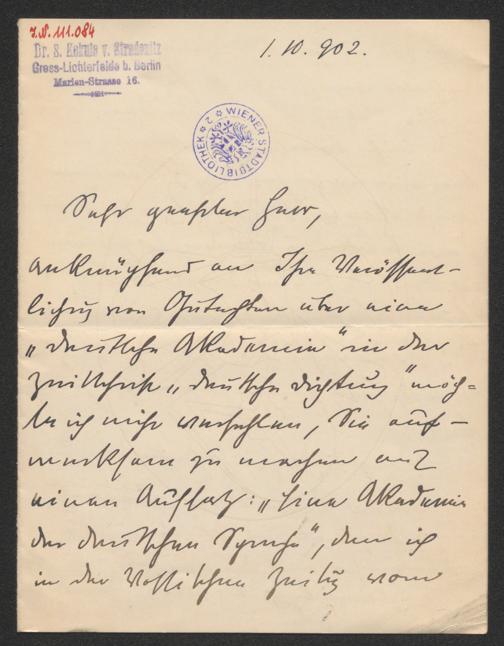 J.N. 111.084
Dr. S. Kekule v. Stradonitz
Gross-Lichterfelde b. Berlin
Marien-Strasse 16.
1. 10. 902.
WIENER STADTBIBLIOTHEK 2
Sehr geehrter Herr,
anknüpfend an Ihre Veröffent-
lichung von Gutachten über eine
„deutsche Akademie" in der
Zeitschrift „deutsche Dichtung" möch-
te ich nicht verfehlen, Sie auf-
merksam zu machen auf
einen Aufsatz: „Eine Akademie
der deutschen Sprache", den ich
in der Vossischen Zeitung vom